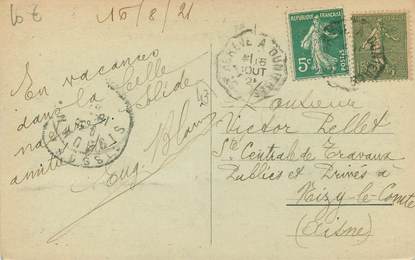 15/8/21
En vacances
dans la belle
Solide
amitié
Eug. Blanc
RÉPUBLIQUE FRANÇAISE
5c
POSTES
15
AOUT
21
Monsieur
Victor Pellet
Sté Centrale de Travaux
Publics et Privés à
Nizy-le-Comte
(Aisne)